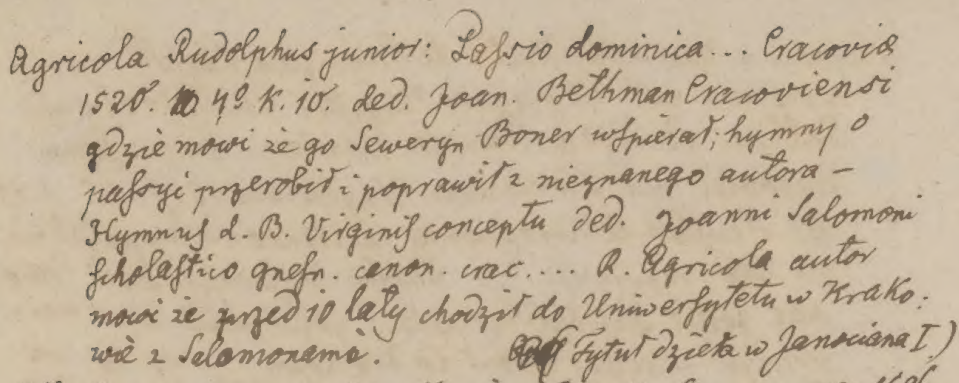 Agricola Rudolphus junior: Passio dominica... Cracoviæ
1520. 4º K. 10. ded. Joan. Bethman Cracoviensi
gdzie mowi że go Seweryn Boner wspierał; hymny o
passyi przerobił i poprawił z nieznanego autora –
Hymnus d. B. Virginis conceptu ded. Joanni Salomoni
scholastico gnesn. canon. crac.... R. Agricola autor
mowi że przed 10 laty chodził do Uniwersytetu w Krako:
wie z Salomonami. Tytuł dzieła w Janociana I)